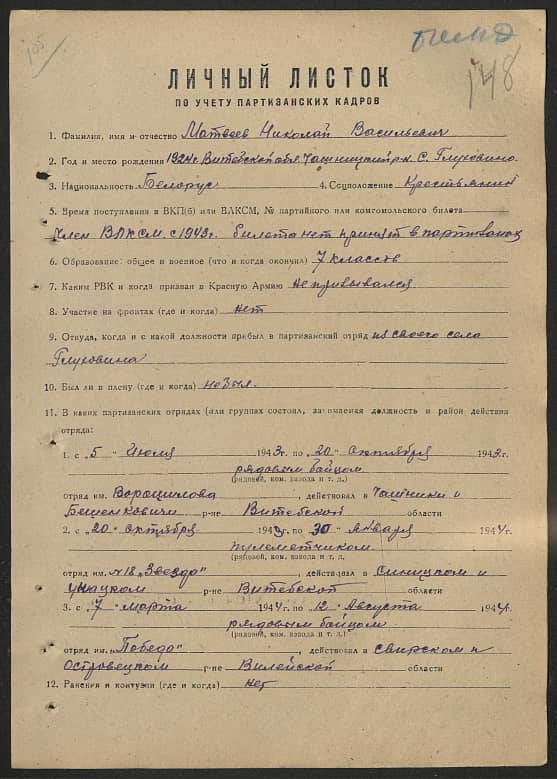 105
148
ЛИЧНЫЙ ЛИСТОК
ПО УЧЕТУ ПАРТИЗАНСКИХ КАДРОВ
1. Фамилия, имя и отчество Матвеев Николай Васильевич
2. Год и место рождения 1924 г. Витебской обл. Чашницкий р-н. С. Глуховино.
3. Национальность Белорус 4. Соцположение Крестьянин
5. Время поступления в ВКП(б) или ВЛКСМ, № партийного или комсомольского билета
Член ВЛКСМ с 1943 г. билета нет принят в партизанах
6. Образование: общее и военное (что и когда окончил) 7 классов
7. Каким РВК и когда призван в Красную Армию не призывался
8. Участие на фронтах (где и когда) нет
9. Откуда, когда и с какой должности прибыл в партизанский отряд из своего села
Глуховина
10. Был ли в плену (где и когда) не был.
11. В каких партизанских отрядах (или группах состоял, занимаемая должность и район действия
отряда:
1. с „5" Июля 1943 г. по „20" октября 1943 г.
рядовым бойцом
(рядовой, ком. взвода и т. д.)
отряд им. Ворошилова, действовал в Чашники и
Бешенковичи р-не Витебской области
2. с „20" октября 1943 г. по „30" января 1944 г.
пулеметчиком
(рядовой, ком. взвода и т. д.)
отряд им. №18 „Звезда", действовал в Синицком и
р-не Витебской области
3. с „7" марта 1944 г. по „12" Августа 1944 г.
рядовым бойцом
(рядовой, ком. взвода и т. д.)
отряд им. „Победа", действовал в Свирском и
Островецком р-не Вилейской области
12. Ранения и контузии (где и когда) нет